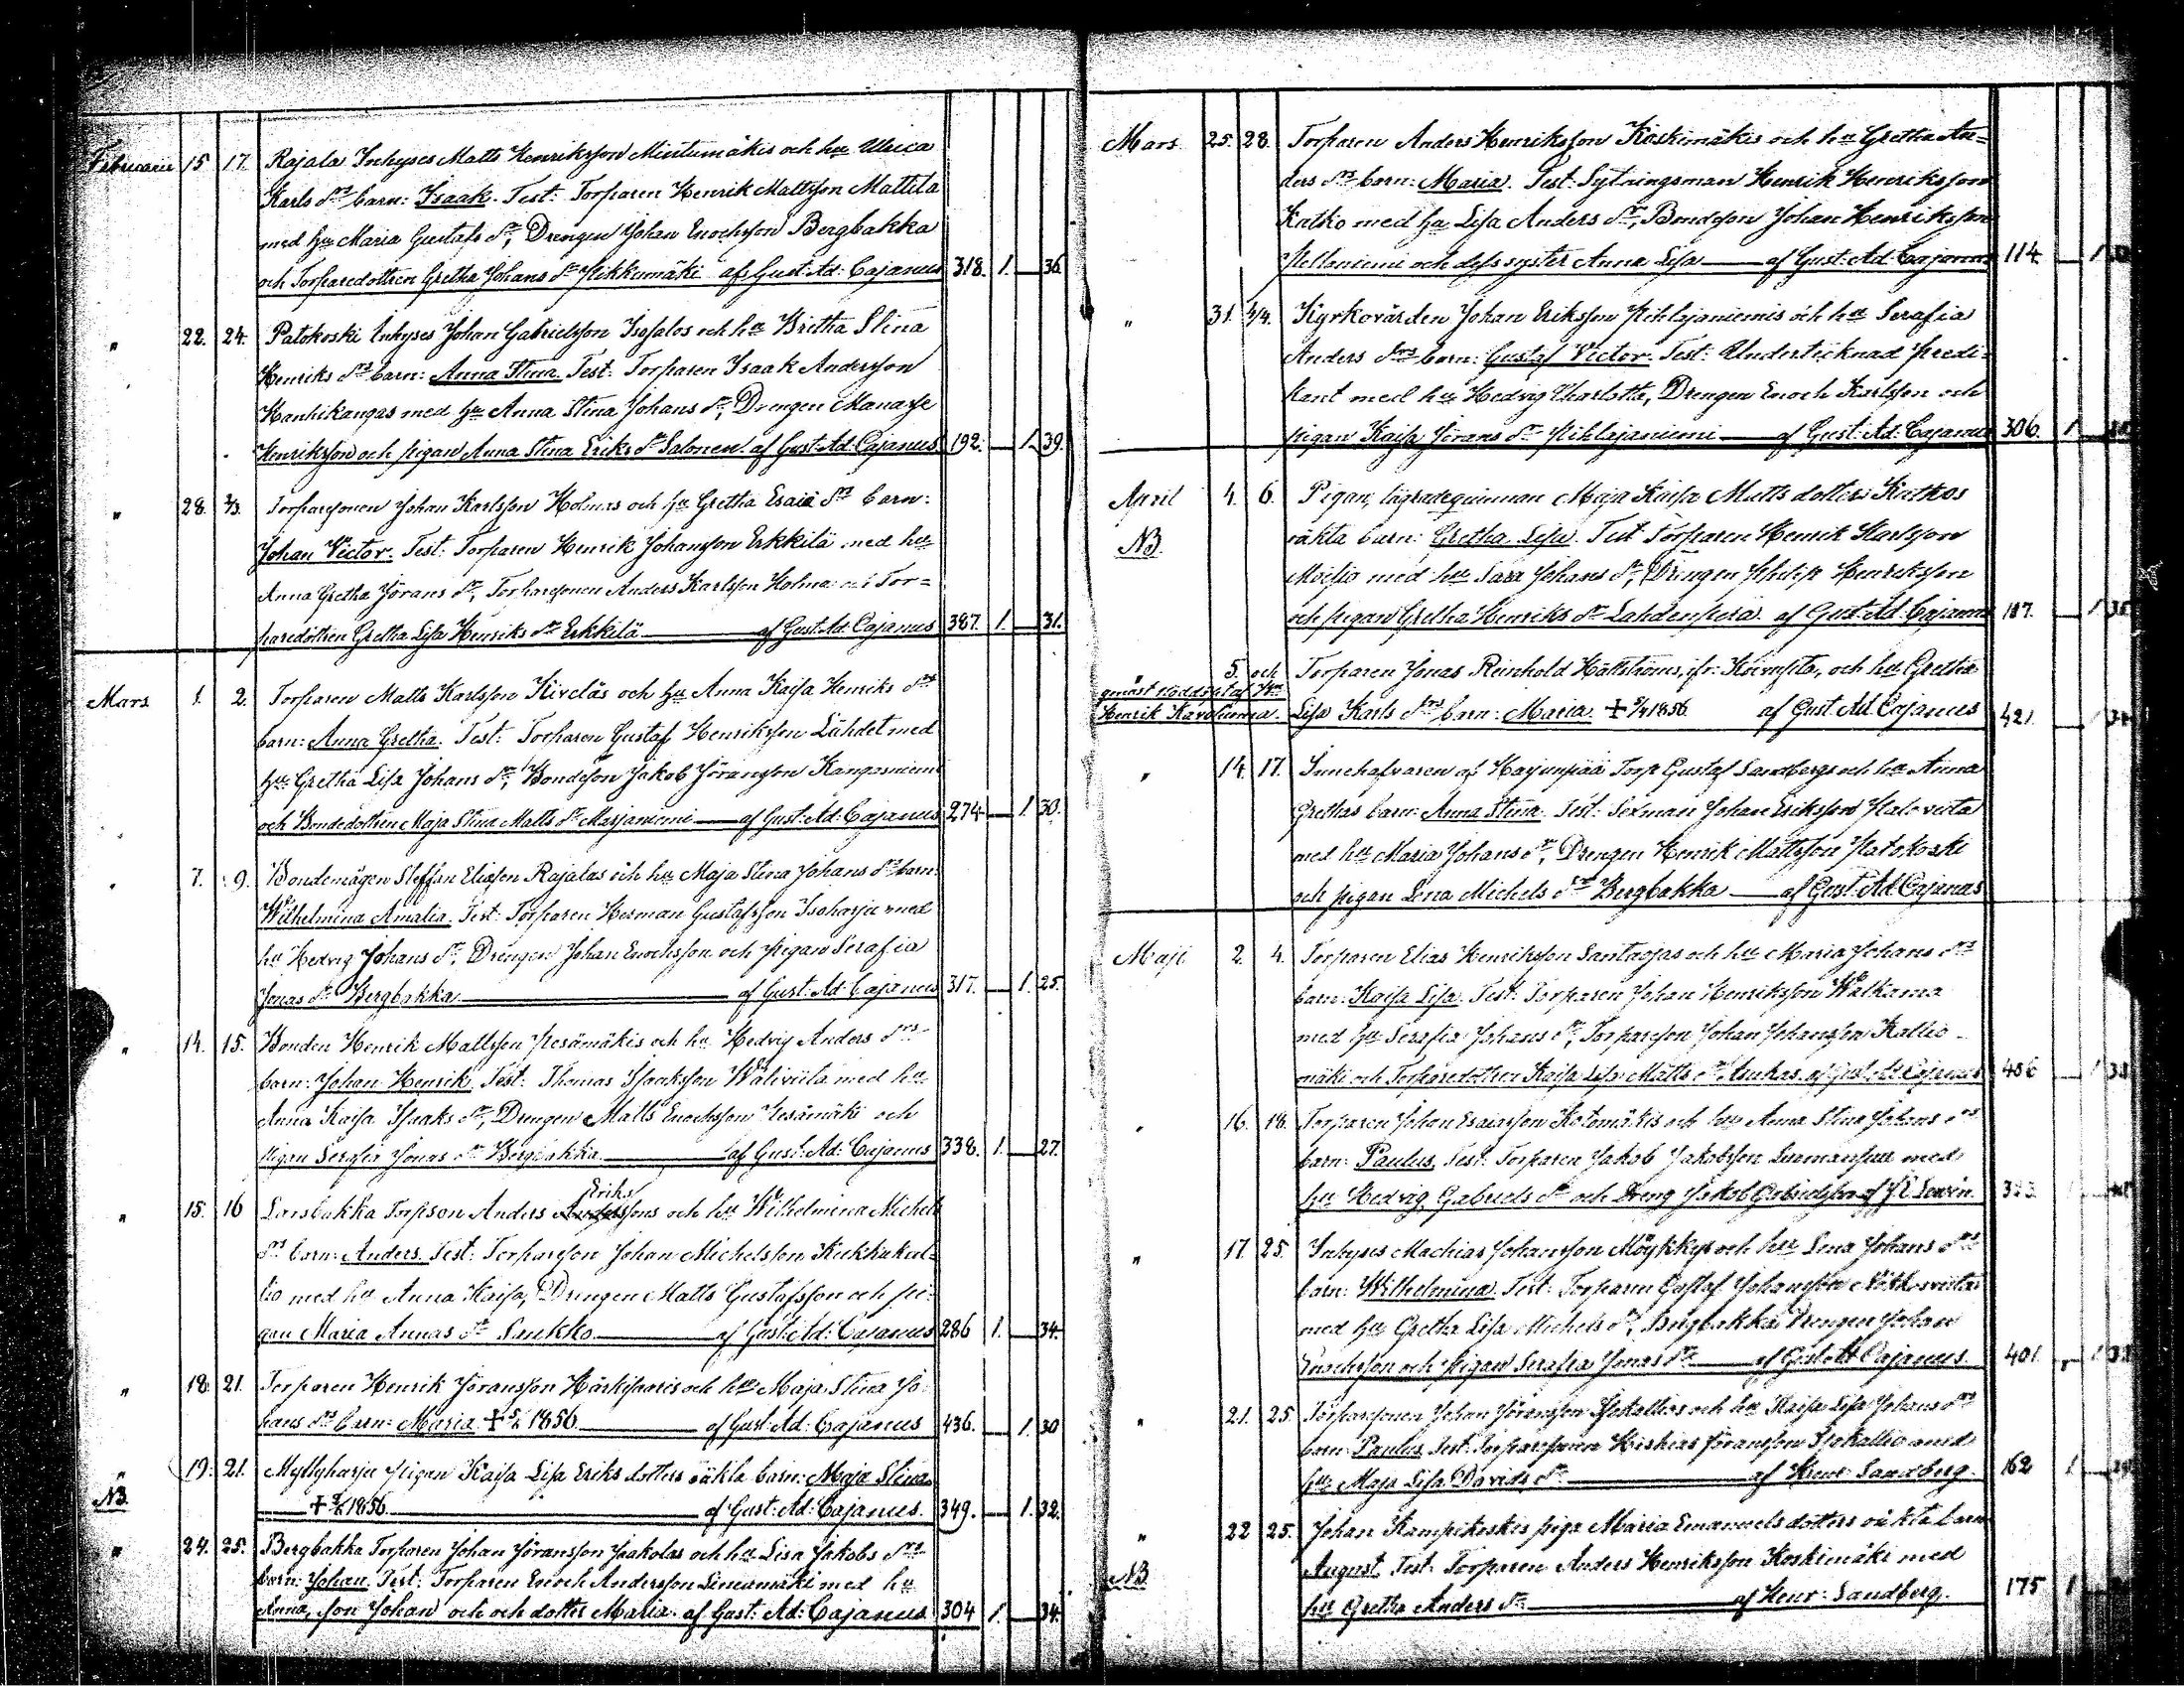 Februarii 15 17. Rajala Inhyses Matts Henriksson Mintumäkis och hu Ulrica
Karls drs barn: Isaak. Test: Torparen Henrik Mattsson Mattila
med hu Maria Gustafs dr, Drengen Johan Enochsson Bergbakka
och Torparedottren Gretha Johans dr af Gust: Ad: Cajanus 318. 1. — 36.
" 22. 24. Patokoski Inhyses Johan Gabrielsson Isosalos och hu Britha Stina
Henriks drs barn: Anna Stina. Test: Torparen Isaak Andersson
Kanhikangas med hu Anna Stina Johans dr, Drengen Manasse
Henriksson och pigan Anna Stina Eriks dr Salonen. af Gust: Ad: Cajanus 192. — 1. 39.
" 28. 2/3. Torparesonen Johan Karlsson Holmas och hu Gretha Esaiæ drs barn:
Johan Victor. Test: Torparen Henrik Johansson Erkkilä med hu
Anna Gretha Jörans dr, Torparesonen Anders Karlsson Holma och Tor=
paredottren Gretha Lisa Henriks dr Erkkilä — af Gust: Ad: Cajanus 387. 1. — 31.
Mars 1. 2. Torparen Matts Karlsson Kiveläs och hu Anna Kaisa Henriks drs
barn: Anna Gretha. Test: Torparen Gustaf Henriksson Lähdet med
hu Gretha Lisa Johans dr, Bondeson Jakob Jöransson Kangasniemi
och Bondedottren Maja Stina Matts dr Marjaniemi — af Gust: Ad: Cajanus 274 — 1. 30.
" 7. 9. Bondemågen Steffan Eliasson Rajalas och hu Maja Stina Johans drs barn:
Wilhelmina Amalia. Test: Torparen Herman Gustafsson Isoharju med
hu Hedvig Johans dr, Drengen Johan Enochsson och pigan Serafia
Jonas dr Bergbakka — af Gust: Ad: Cajanus 317. — 1. 25.
" 14. 15. Bonden Henrik Mattsson Pesämäkis och hu Hedvig Anders drs
barn: Johan Henrik. Test: Thomas Isaaksson Waliviita med hu
Anna Kaisa Isaaks dr, Drengen Matts Enochsson Pesämäki och
pigan Serafia Jonas dr Bergbakka — af Gust: Ad: Cajanus 338. 1. — 27.
" 15. 16 Lansbakka Torpson Anders Eriks Anderssons och hu Wilhelmina Michels
drs barn: Anders. Test: Torpareson Johan Michelsson Kukkakal=
lio med hu Anna Kaisa, Drengen Matts Gustafsson och pi=
gan Maria Annas dr Saukko — af Gust: Ad: Cajanus 286 1. — 34.
" 18. 21. Torparen Henrik Jöransson Härkiparis och hu Maja Stina Jo=
hans drs barn: Maria. + 1856. — af Gust: Ad: Cajanus 436. — 1. 30
" 19. 21. Myllyharju Pigan Kaisa Lisa Eriks dotters oäkta barn: Maja Stina.
NB. — + 1856. — af Gust: Ad: Cajanus. 349. — 1. 32.
" 24. 25. Bergbakka Torparen Johan Jöransson Jaakolas och hu Lisa Jakobs drs
barn: Johan. Test: Torparen Enoch Andersson med hu
Anna, son Johan och och dotter Maria. af Gust: Ad: Cajanus 304 1. — 34.
Mars 25. 28. Torparen Anders Henriksson Koskimäkis och hu Gretha An=
ders drs barn: Maria. Test: Sytningsman Henrik Henriksson
Katko med hu Lisa Anders dr, Bondeson Johan Henriksson
och dess syster Anna Lisa — af Gust: Ad: Cajanus 114. — 1
" 31. 4/4. Kyrkovärden Johan Eriksson Pihlajaniemis och hu Serafia
Anders drs barn: Gustaf Victor. Test: Undertecknad Predi=
kant med hu Hedvig Charlotta, Drengen Enoch Karlsson och
pigan Kaisa Jörans dr Pihlajaniemi — af Gust: Ad: Cajanus 306. 1. —
April 4. 6. Pigan, lägradequinnan Maja Kaisa Matts dotters Katkos
NB. oäkta barn: Gretha Lisa. Test Torparen Henrik Karlsson
Moisio med hu Sara Johans dr, Drengen Philip Henriksson
och pigan Gretha Henriks dr Lahdenperä. af Gust: Ad: Cajanus 117. — 1
" 5. och Torparen Jonas Reinhold Hällströms, och hu Gretha
genast nöddöpt af
Henrik Lisa Karls drs barn: Maria. + 1856. af Gust: Ad: Cajanus 421. — 1
" 14. 17. Innehafvaren af Harjunpää Torp Gustaf Sandbergs och hu Anna
Grethas barn: Anna Stina. Test: Sexman Johan Eriksson Palovirta
med hu Maria Johans dr, Drengen Henrik Mattsson Patokoski
och pigan Lena Michels dr Bergbakka — af Gust: Ad: Cajanus
Maji 2. 4. Torparen Elias Henriksson Santaojas och hu Maria Johans drs
barn: Kaisa Lisa. Test: Torparen Johan Henriksson Walkama
med hu Serafia Johans dr, Torpareson Johan Johansson Kallio=
mäki och Torparedottren Kaisa Lisa Matts dr af Gust: Ad: Cajanus 456 — 1
" 16. 18. Torparen Johan Esaiasson Kotomäkis och hu Anna Stina Johans drs
barn: Paulus. Test: Torparen Jakob Jakobsson med
hu Hedvig Gabriels dr och Dreng Jakob Gabrielsson af 
" 17. 25. Inhyses Machias Johansson Möykkys och hu Lena Johans drs
barn: Wilhelmina. Test: Torparen Gustaf Johansson
med hu Gretha Lisa Michels dr, Bergbakka Drengen Johan
Enochsson och pigan Serafia Jonas dr — af Gust: Ad: Cajanus. 401.
" 21. 25. Torparesonen Johan Jöransson Isokallios och hu Kaisa Lisa Johans drs
barn: Paulus. Test: Torparesonen Hiskias Jöransson Isokallio med
hu Maja Lisa Davids dr — af Henr: Sandberg. 162 1 —
" 22 25. Johan Kampikoskis piga Maria Emanuels dotters oäkta barn
NB. August. Test: Torparen Anders Henriksson Koskimäki med
hu Gretha Anders dr — af Henr: Sandberg. 175 1 —